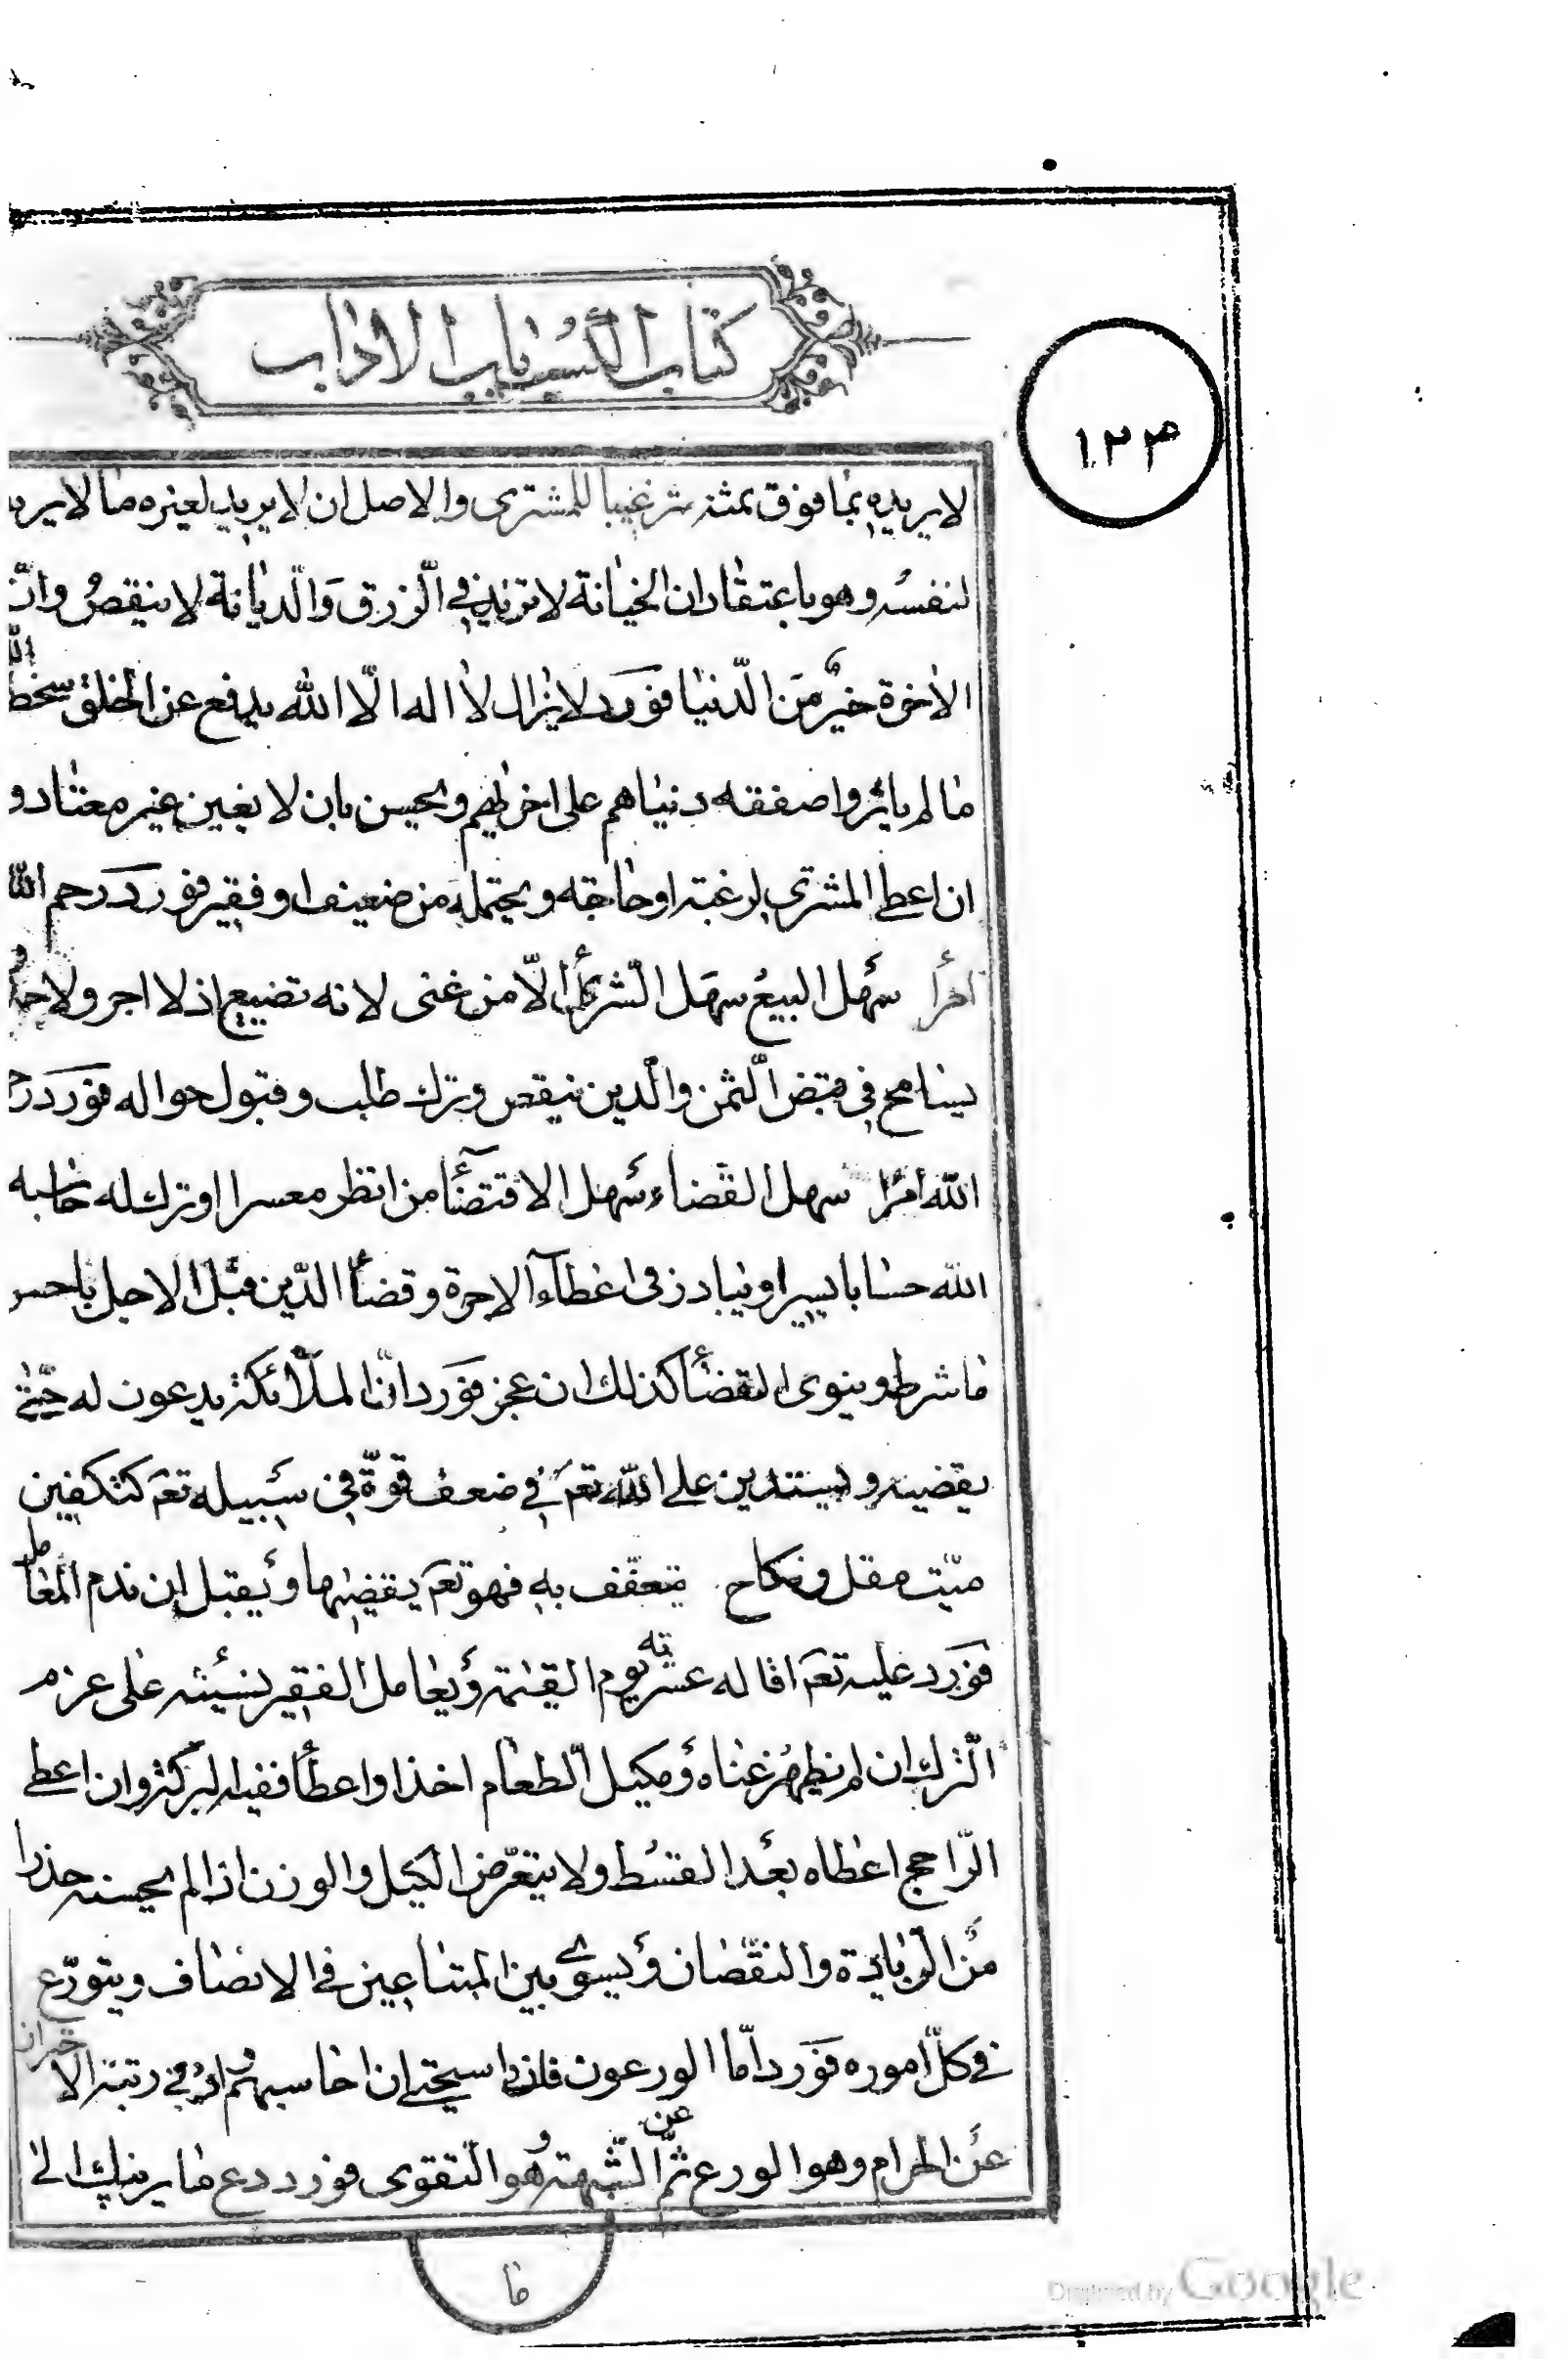 كتاب الكسب باب الاداب
١٢٣
لا يريده بما فوق بمثنه ترغيبا للمشترى والاصل ان لا يريد لغيره ما لا يريد
لنفسه وهو باعتقاد ان الخيانة لا تزيد في الرزق والديانة لا ينقص وان
الاخرة خير من الدنيا فورد لا يزال لا اله الا الله يدفع عن الخلق سخط الله
ما لم ياثروا صفقه دنياهم على اخرتهم ويحسن بان لا يغبن غير معتاد و
ان اعطى المشترى لرغبته او حاجته ويحتمله من ضعيف او فقير فورد رحم الله
امرأ سهل البيع سهل الشراء الا من غنى لانه تضييع اذ لا اجر ولا حمد
يسامح في قبض الثمن والدين بنقص وترك طلب وقبول حواله فورد رحم
الله امرأ سهل القضاء سهل الاقتضاء من انظر معسرا او ترك له حاسبه
الله حسابا يسيرا ويبادر فى اعطاء الاجرة وقضاء الدين قبل الاجل باحسن
ما شرط وينوى القضاء كذلك ان عجز فورد ان الملائكة يدعون له حتى
يقضيه ويستدين على الله تعم في ضعف قوة في سبيله تعم كتكفين
ميت مقل ونكاح يتعفف به فهو تعم يقضيها ويقبل ان ندم المعامل
فورد عليه تعم اقاله عسرته يوم القيمة ويعامل الفقير بنسيئة على عزم
الترك ان لم يظهر غناه ومكيل الطعام اخذا واعطاء ففيه البركة وان اعطى
الراجح اعطاه بعد القسط ولا يتعرض الكيل والوزن اذا لم يحسنه حذرا
من الزيادة والنقصان ويسوى بين المتبايعين في الانصاف ويتورع
في كل اموره فورد اما الورعون فانى استحيى ان احاسبهم وادنى رتبته الاحتراز
عن الحرام وهو الورع ثم عن الشبهة وهو التقوى فورد دع ما يريبك الى
ما
Digitized by Google